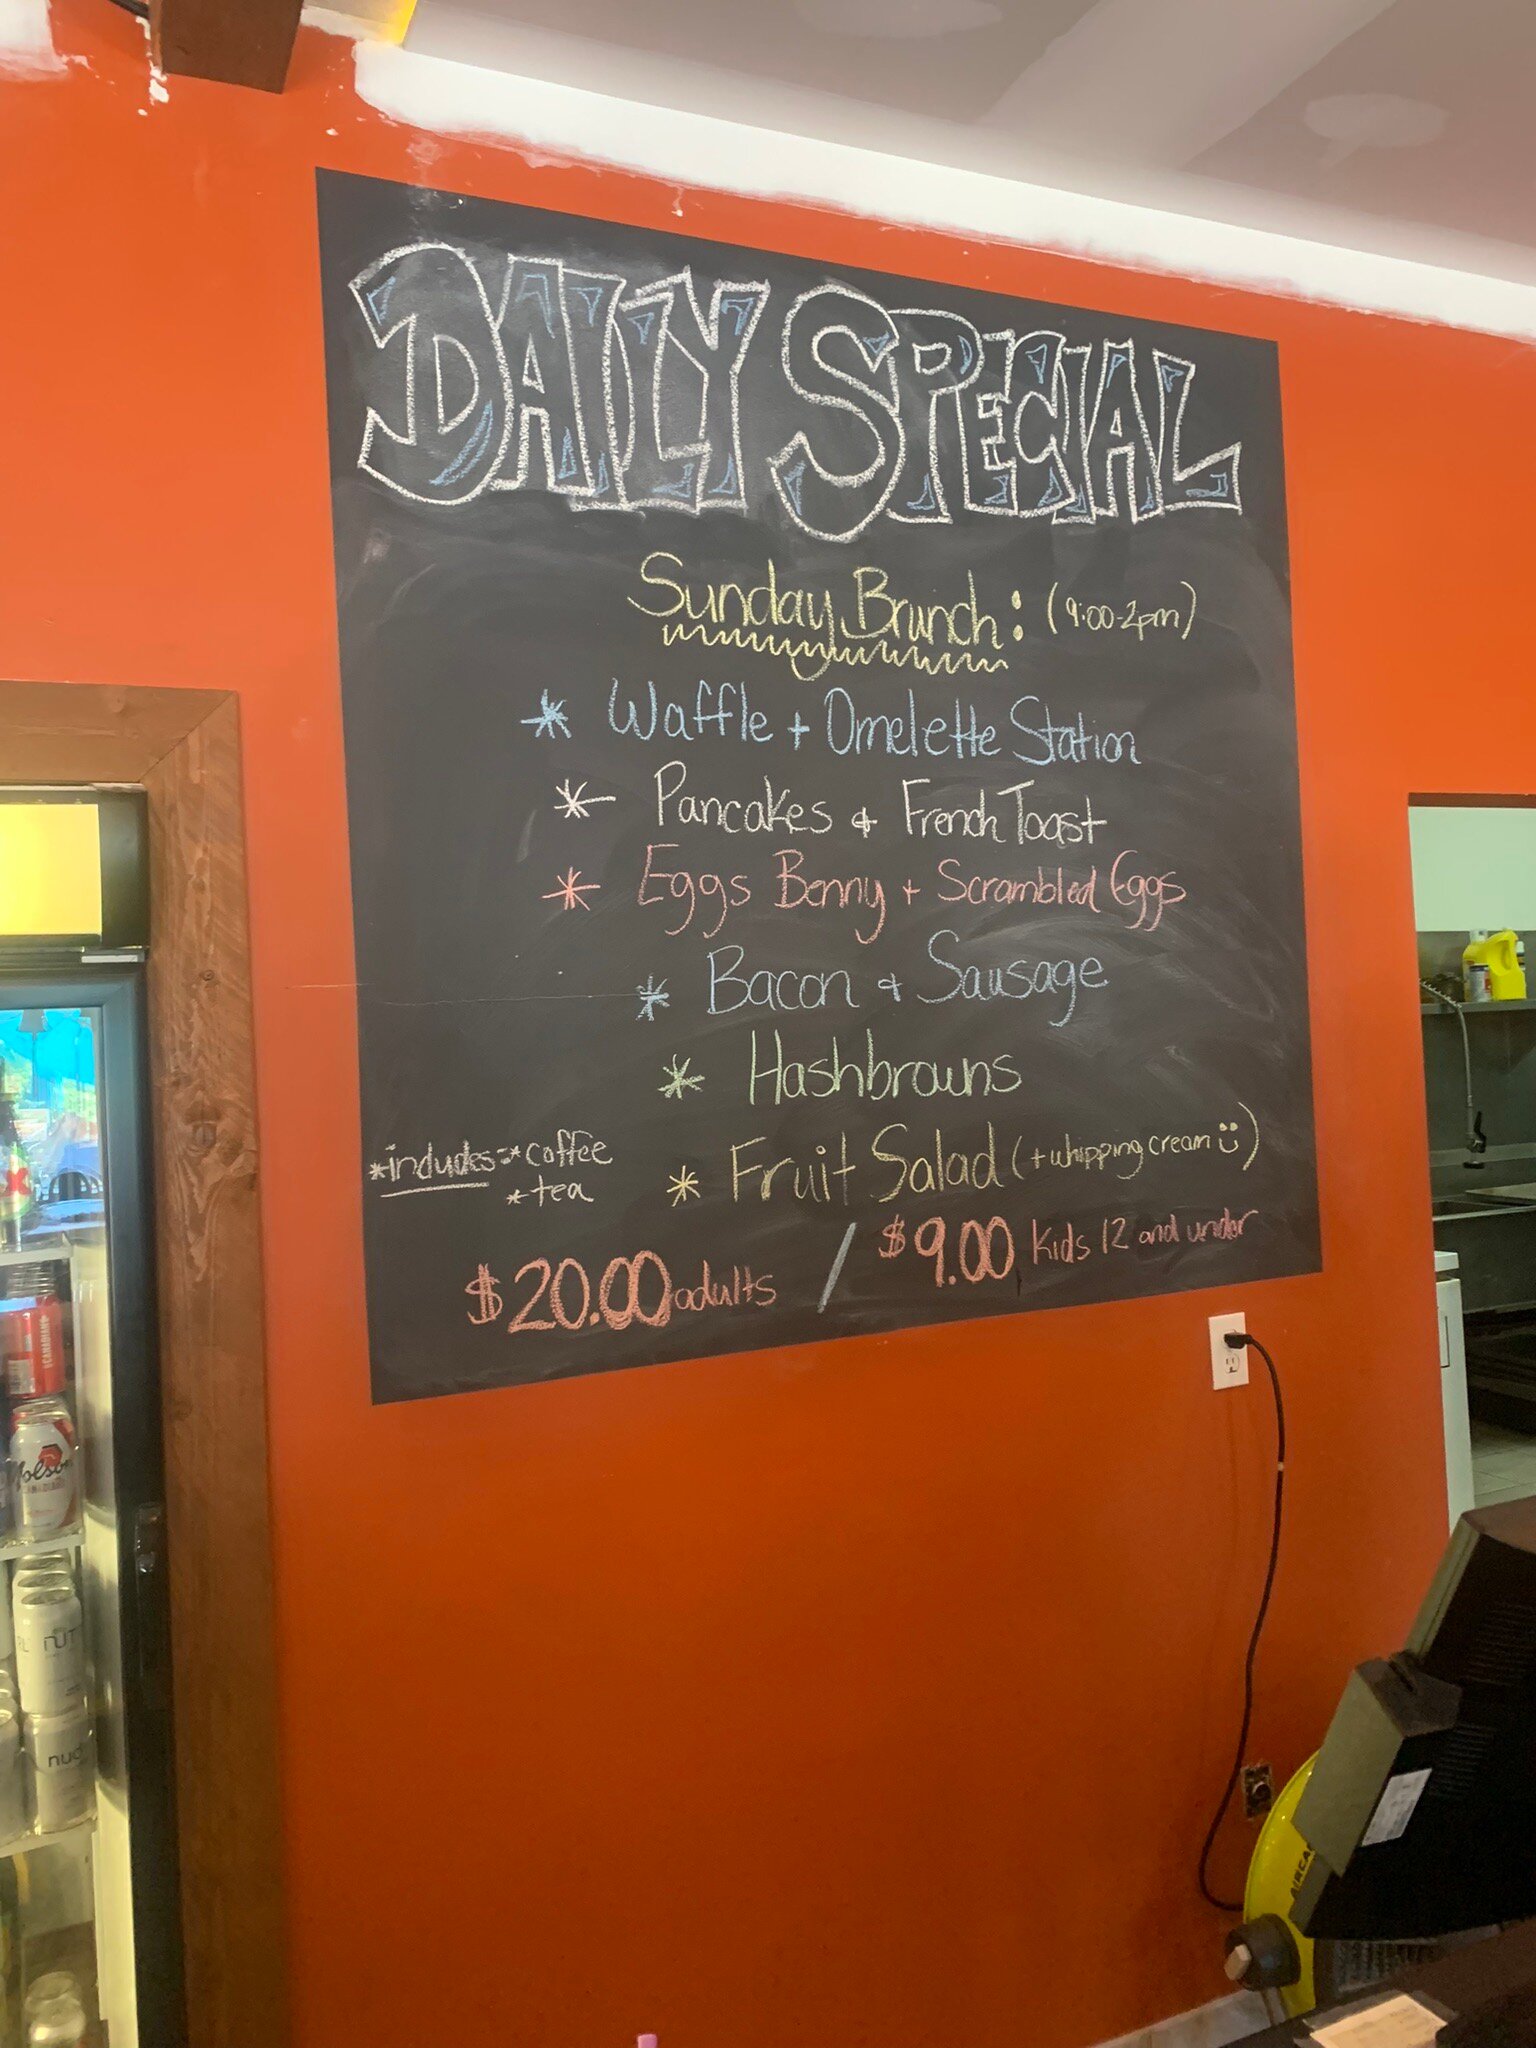 DAILY SPECIAL
Sunday Brunch: (9:00-2pm)
* Waffle + Omelette Station
* Pancakes + French Toast
* Eggs Benny + Scrambled Eggs
* Bacon + Sausage
* Hashbrowns
* Fruit Salad (+ whipping cream ü)
*includes:* coffee
* tea
$20.00 adults / $9.00 Kids 12 and under
CANADIAN
Molson
CANADIAN
nud